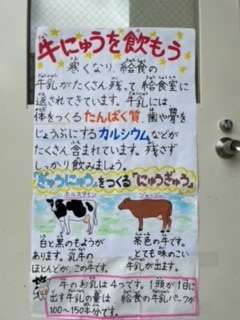 牛にゅうを飲もう
寒くなり、給食の
牛乳がたくさん残って給食室に
返されてきています。牛乳には
体をつくるたんぱく質、歯や骨を
じょうぶにするカルシウムなどが
たくさん含まれています。残さず
しっかり飲みましょう。
「ぎゅうにゅう」をつくる「にゅうぎゅう」
ホルスタイン
ジャージー
白と黒のもようが
あります。乳牛の
ほとんどが、この牛です。
茶色の牛です。
とても味のこい
牛乳が出ます。
牛のお乳は4つです。1頭が1日に
出す牛乳の量は、給食の牛乳パック
100〜150本分です。